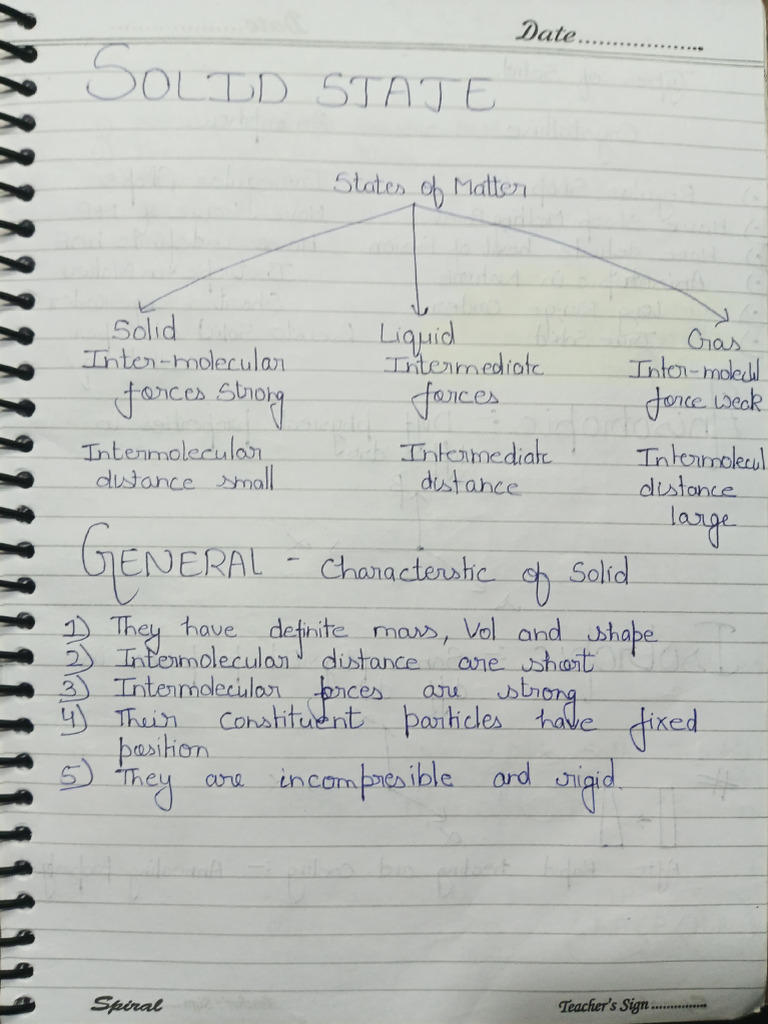 Date....................
SOLID STATE
States of Matter
Solid
Inter-molecular
forces Strong
Intermolecular
distance small
Liquid
Intermediate
forces
Intermediate
distance
Gas
Inter-molecul
force weak
Intermolecul
distance
large
GENERAL - Characterstic of Solid
1) They have definite mass, Vol and shape
2) Intermolecular distance are short
3) Intermolecular forces are strong
4) Their constituent particles have fixed
position
5) They are incompresible and rigid.
Spiral
Teacher's Sign...............